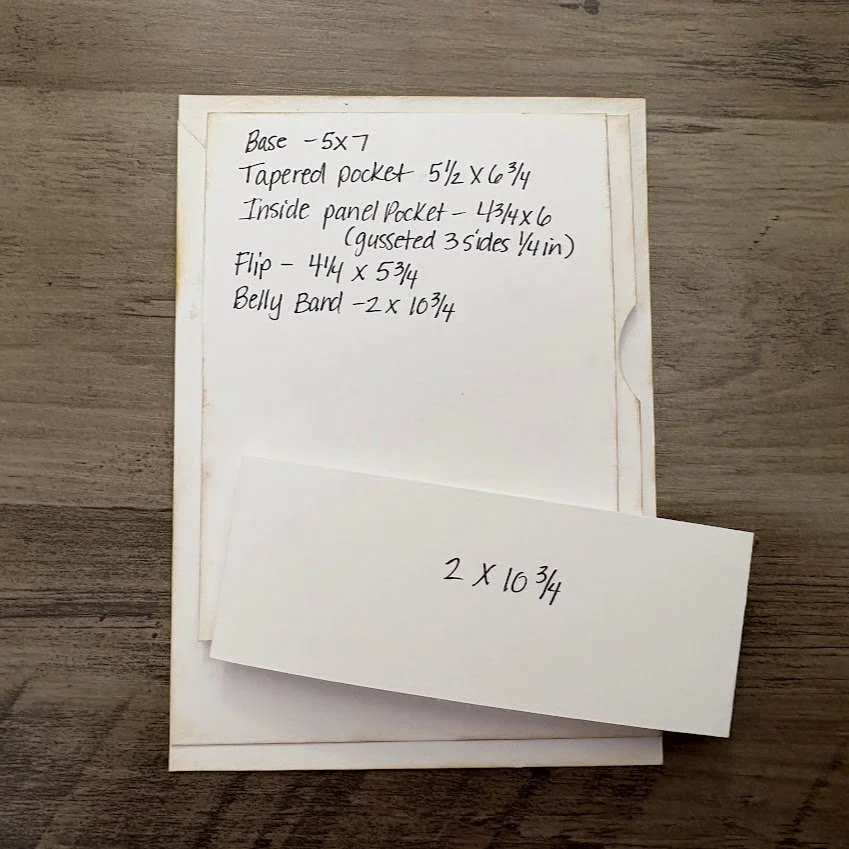 Base - 5x7
Tapered pocket 5 1/2 x 6 3/4
Inside panel Pocket - 4 3/4 x 6
(gusseted 3 sides 1/4 in)
Flip - 4 1/4 x 5 3/4
Belly Band - 2 x 10 3/4
2 x 10 3/4